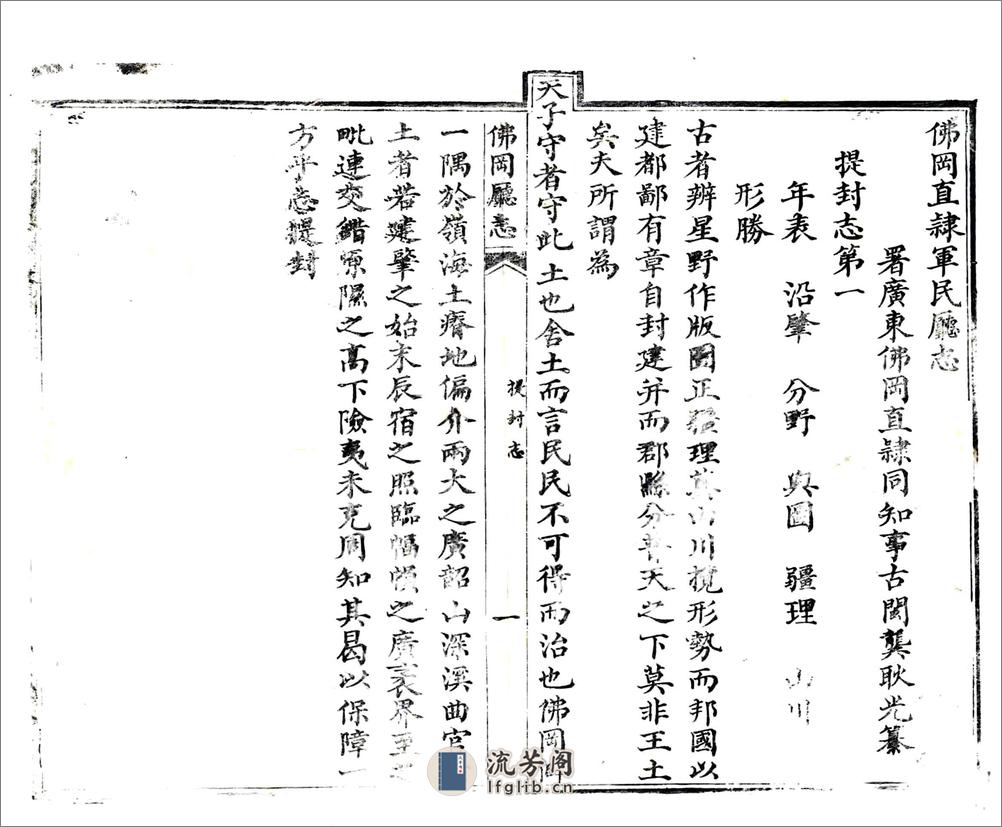 佛岡直隸軍民廳志
署廣東佛岡直隸同知事古閩龔耿光纂
提封志第一
年表 沿肇 分野 輿圖 疆理 山川
形勝
古者辨星野作版圖正疆理奠山川攬形勢而邦國以
建都鄙有章自封建并而郡縣分普天之下莫非王土
矣夫所謂為
天子守者守此土也舍土而言民民不可得而治也佛岡
佛岡廳志
提封志
一
一隅於嶺海土瘠地偏介兩大之廣韶山深溪曲官
土者若建肇之始末辰宿之照臨幅幀之廣袤界至之
毗連交錯原隰之高下險夷未克周知其曷以保障一
方乎志提封
流芳阁
lfglib.cn